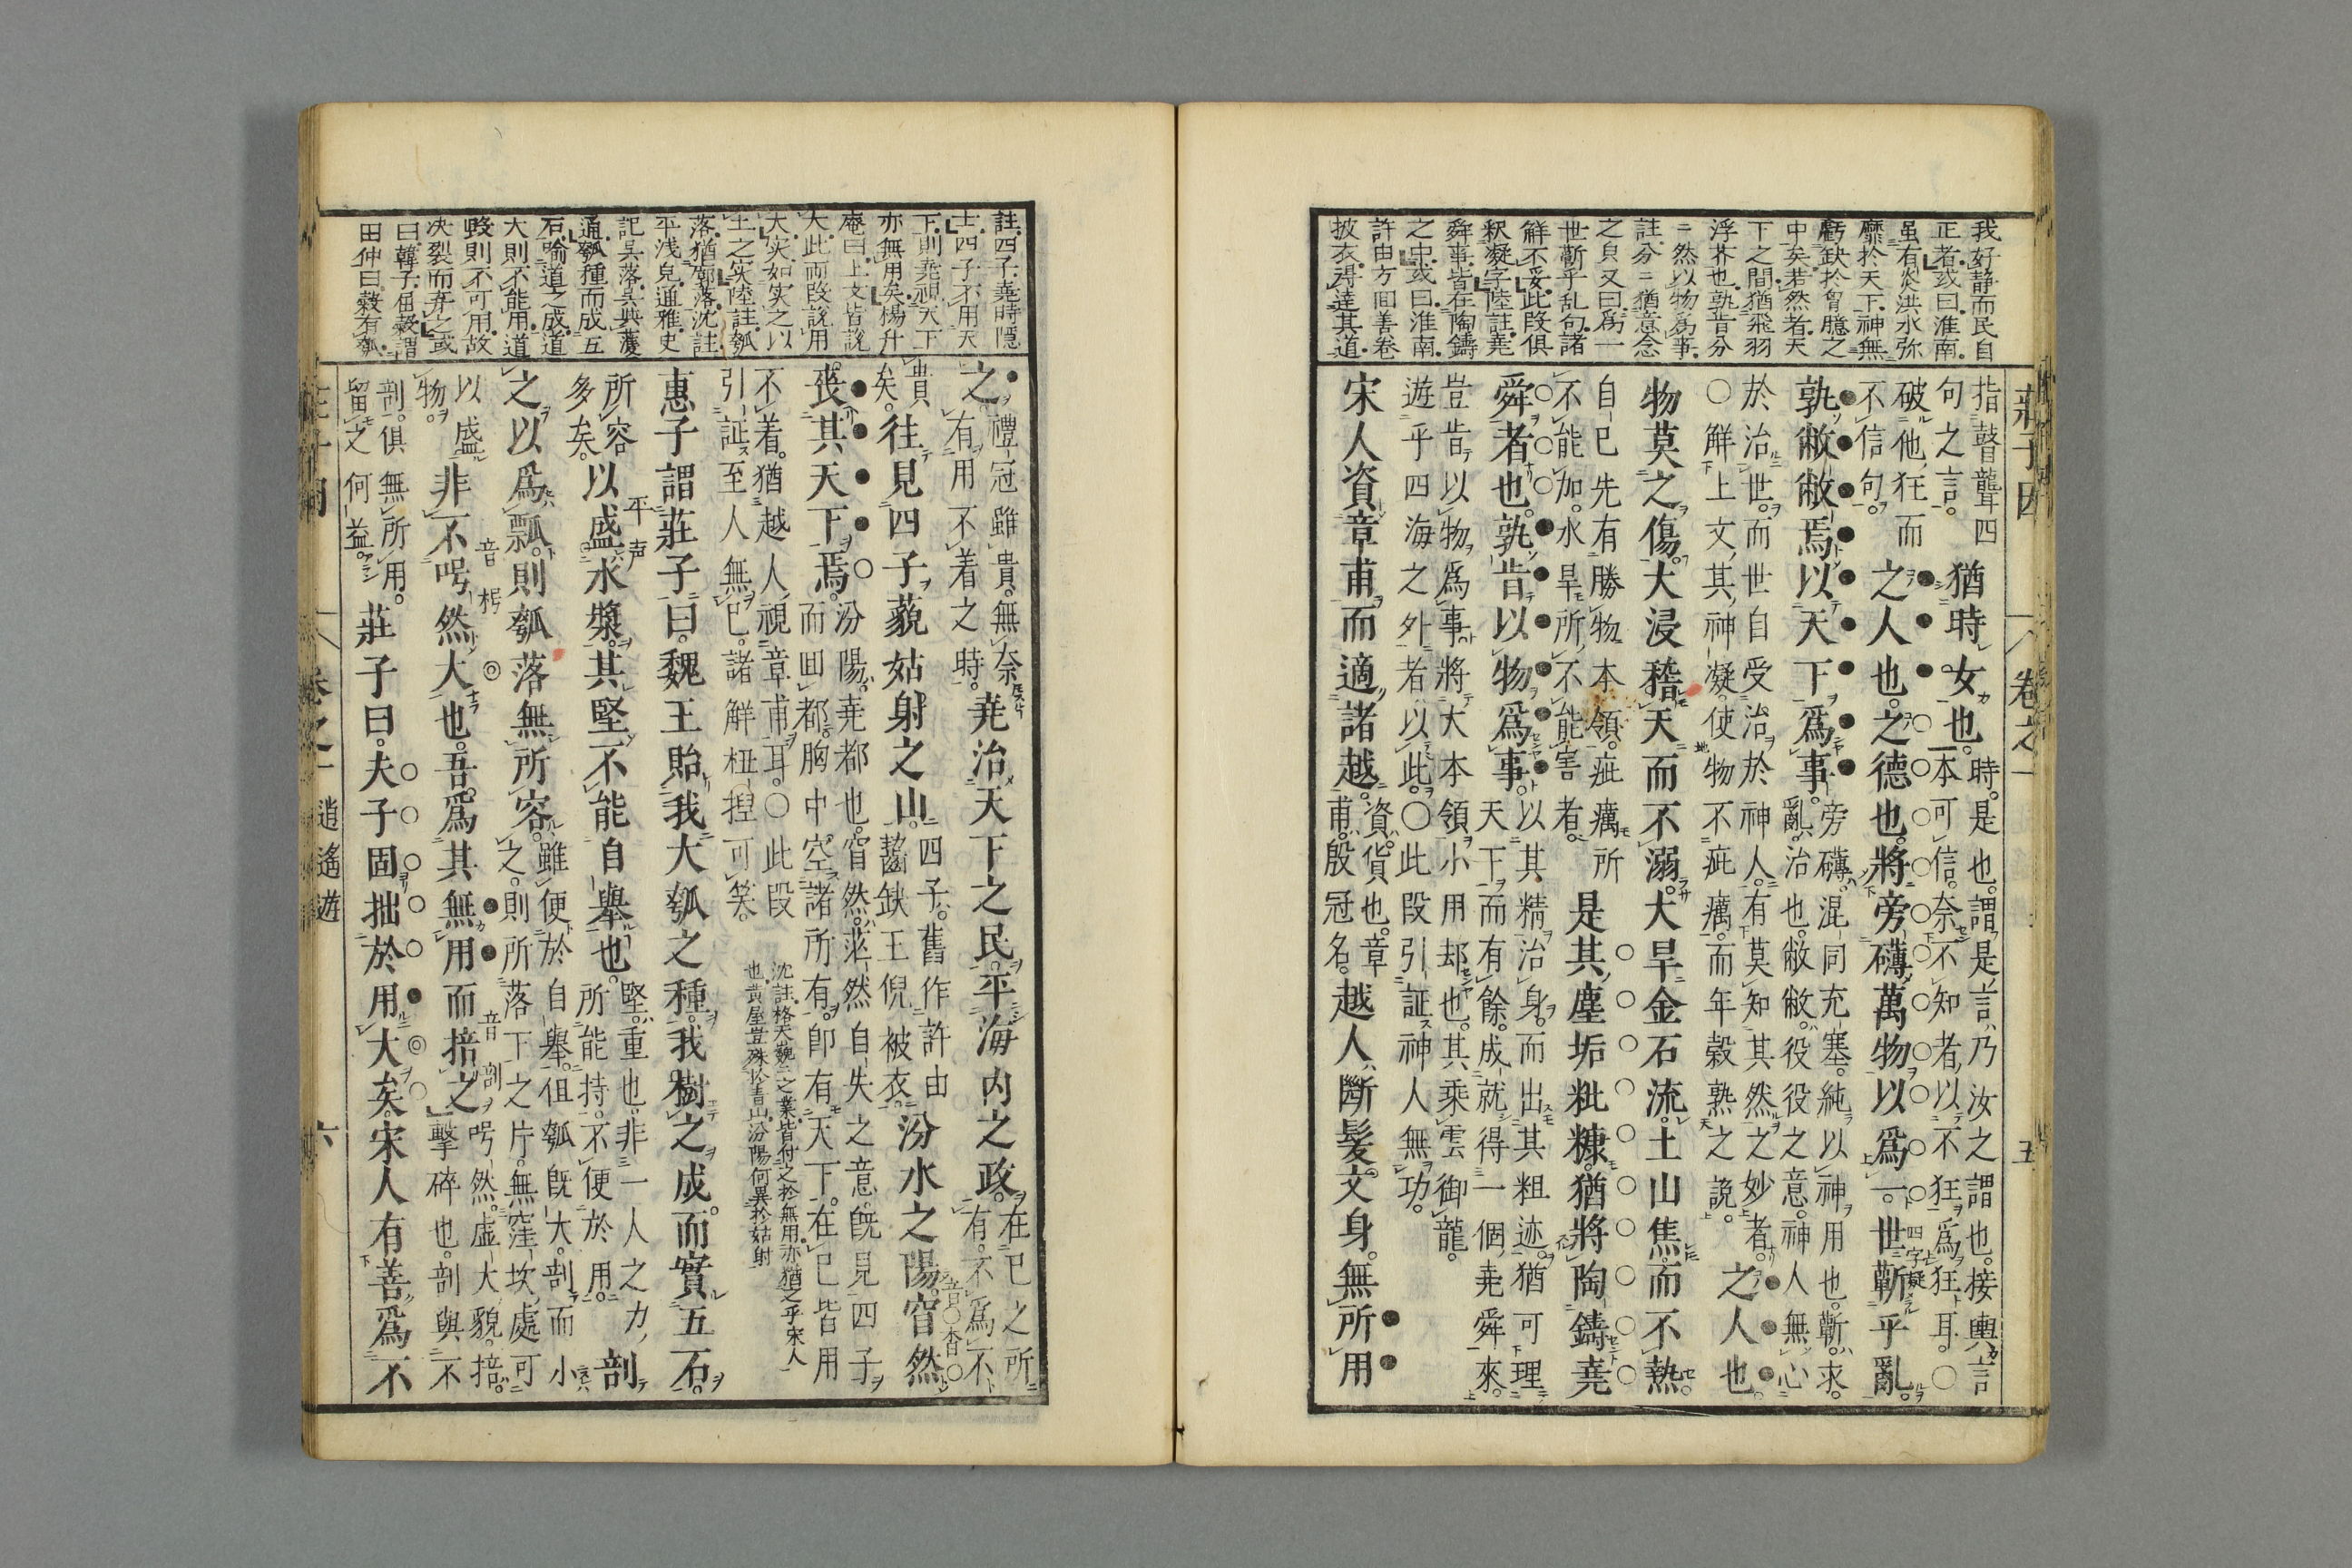 我好静而民自
正者或曰淮南
虽有炎洪水弥
靡於天下神無
虧缺於胷臆之
中矣若然者天
下之間猶飛羽
浮芥也孰肯分
〻然以物爲事
註分〻猶意念
之㒵又曰爲一
世蘄乎乱句諸
解不妥此段俱
釈凝字陸註堯
舜事皆在陶鑄
之中或曰淮南
許由方回善卷
披衣得達其道
莊子因 卷之一 五
指瞽聾四
句之言。
猶時女也。
時。是也。謂是言乃汝之謂也。接輿言
本可信。奈不知者以不狂爲狂耳。○
破他狂而
不信句。
之人也。之德也。將旁礴萬物以爲一。世蘄乎亂。
四字凝上
孰敝敝焉以天下爲事。
旁礴。混同充塞。純以神用也。蘄。求。
亂。治也。敝敝。役役之意。神人無心
於治世。而世自受治於神人。有莫知其然之妙者。
○解上文其神凝使物不疵癘。而年穀熟之説。
之人也。
物莫之傷。大浸稽天而不溺。大旱金石流。土山焦。而不熱。
自已先有勝物本領。疵癘所
不能加。水旱所不能害者。
是其塵垢粃糠。猶將陶鑄堯
舜者也。孰肯以物爲事。
以其精治身。而出其粗迹。猶可理
天下。而有餘。成就得一個堯舜來。
豈肯以物爲事。將大本領小用却也。其乘雲御龍。
遊乎四海之外者以此。○此段引証神人無功。
宋人資章甫而適諸越。
資。貨也。章
甫。殷冠名。
越人斷髮文身。無所用
註四子堯時隱
士四子不用天
下則堯視天下
亦無用矣楊升
庵曰上文皆說
大此而段說用
大实如实之以
土之实陸註瓠
落猶廓落沈註
平浅皃通雅史
記呉落呉與濩
通瓠種而成五
石喻道之成道
大則不能用道
毀則不可用故
决裂而弃之或
曰韓子屈穀謂
田仲曰穀有瓠
之。
禮冠雖貴。無奈
有用不着之時。
堯治天下之民。平海内之政。
在已之所
有。不爲不
貴
矣。
往見四子藐姑射之山。
四子。舊作許由
齧缺王倪被衣。
汾水之陽。窅然
音○杳○
喪其天下焉。
汾陽。堯都也。窅然。茫然自失之意。旣見四子
而回都。胸中空諸所有。卽有天下。在已皆用
不着。猶越人視章甫耳。○此段
引証至人無已。諸解杻揑可笑。
沈註格天巍〻之業皆付之於無用亦猶之乎宋人
也黄屋豈殊於青山汾陽何異於姑射
惠子謂莊子曰。魏王貽我大瓠之種。我樹之成。而實五石。
所容
多矣。
以盛水漿。其堅不能自舉也。
平声
堅。重也。非一人之力
所能持。不便於用。
剖
之以爲瓢。則瓠落無所容。
雖便於自舉。但瓠旣大。剖而小
之。則所落下之片。無窪坎處可
以盛
物。
非不呺然大也。吾爲其無用而掊之
音枵
音剖
呺然。虚大貌。掊
擊碎也。剖與不
剖。俱無所用。
留之何益。
莊子曰。夫子固拙於用大矣。宋人有善爲不
卷之一 逍遙遊 六